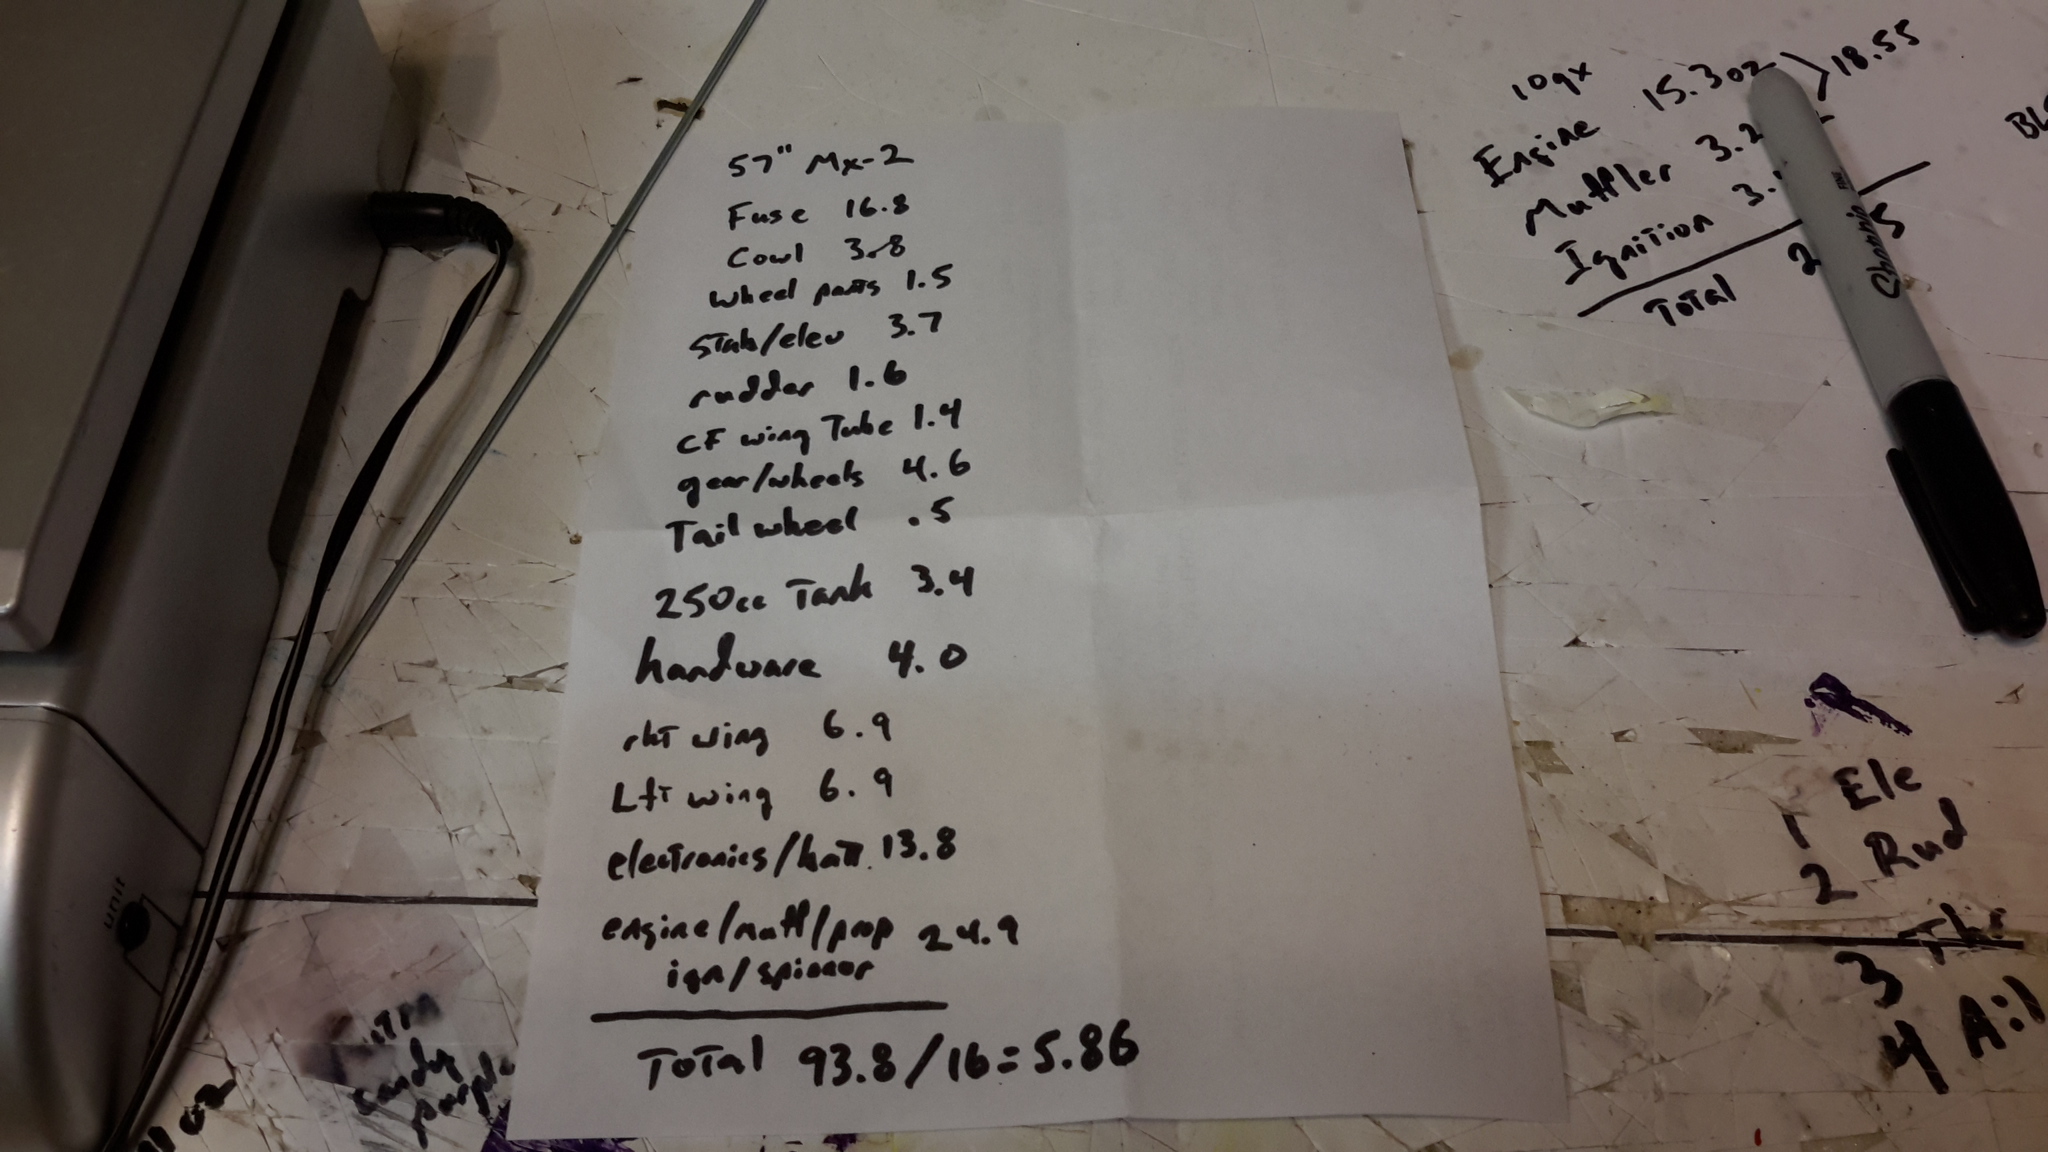 57" Mx-2
Fuse 16.8
Cowl 3.8
wheel pants 1.5
Stab/elev 3.7
rudder 1.6
CF wing Tube 1.4
gear/wheels 4.6
Tail wheel .5
250cc Tank 3.4
hardware 4.0
rht wing 6.9
Lft wing 6.9
electronics/batt. 13.8
engine/muff/prop 24.9
ign/spinner
Total 93.8/16=5.86
10gx
Engine 15.3oz 18.55
Muffler
Ignition
Total
Sharpie
FINE
1 Ele
2 Rud
3 Thr
4 Ail
unit
candy
purple